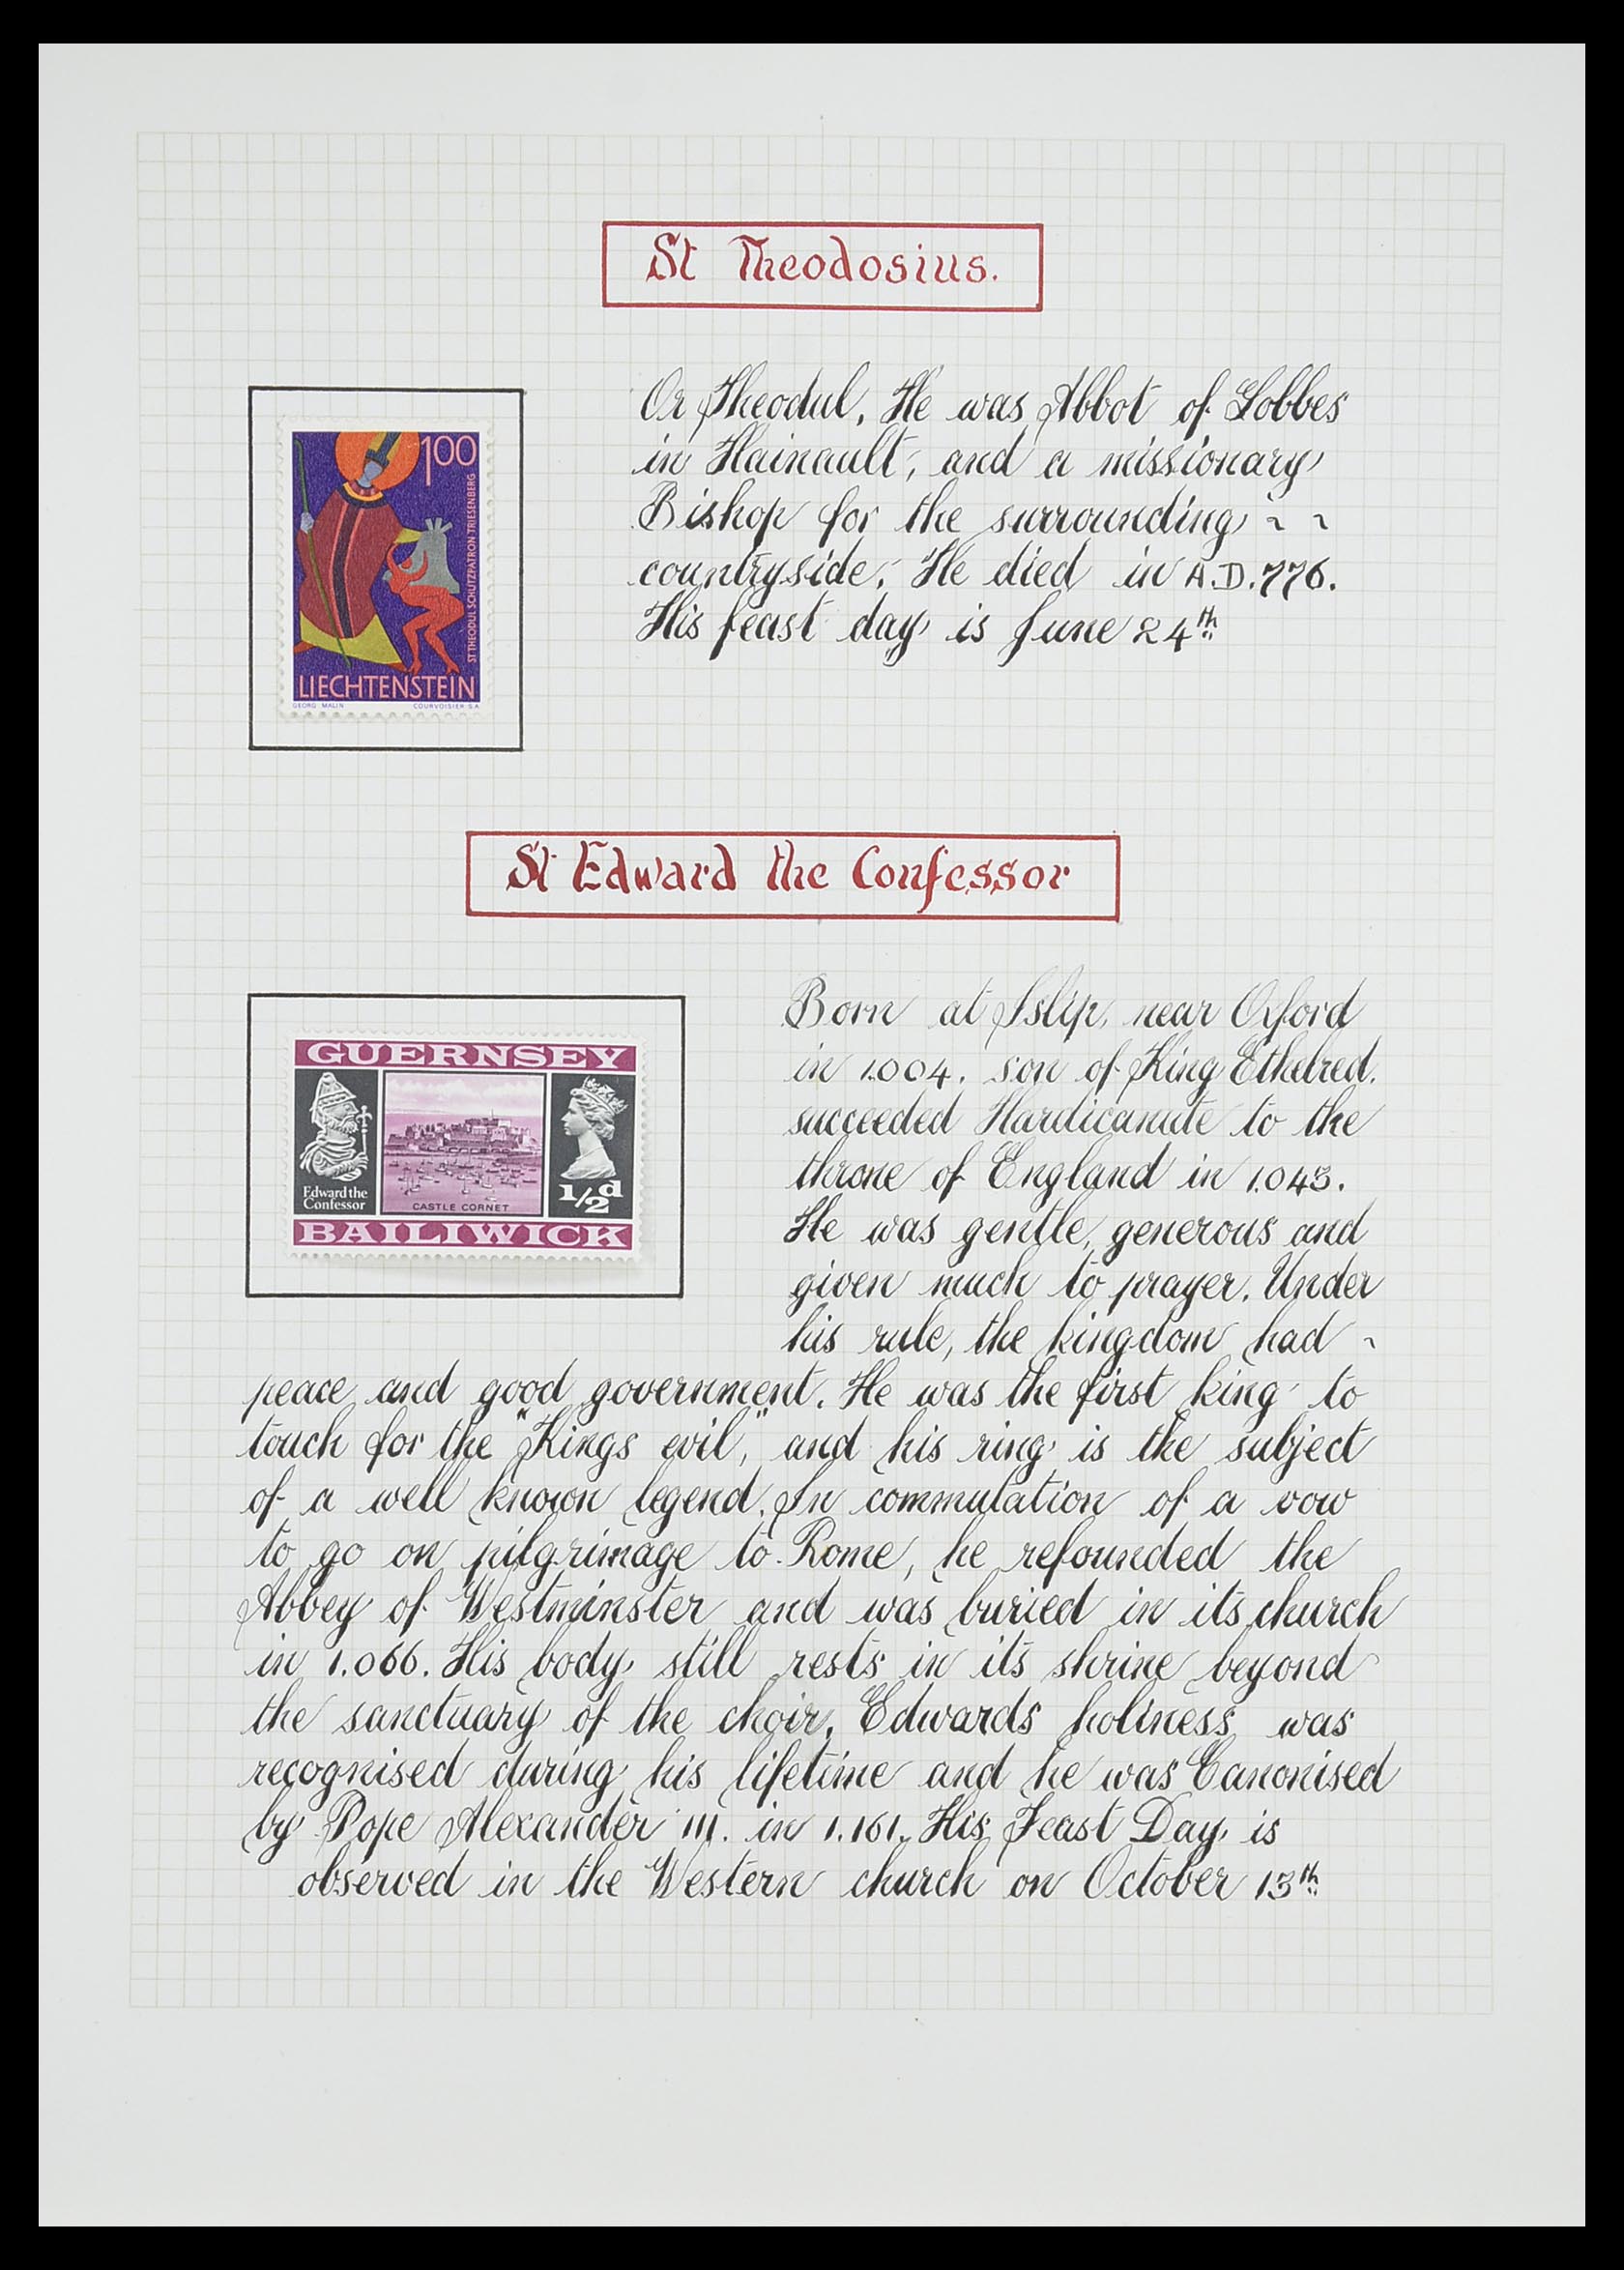 St Theodosius.
Or Theodul, He was Abbot of Lobbes
in Hainault, and a missionary
Bishop for the surrounding ~ ~
countryside, He died in A.D. 776.
His feast day is June 24th
1.00
ST THEODUL SCHUTZPATRON TRIESENBERG
LIECHTENSTEIN
GEORG MALIN COURVOISIER S.A
St Edward the Confessor
GUERNSEY
Edward the
Confessor
CASTLE CORNET
1/2d
BAILIWICK
Born at Islip, near Oxford
in 1.004. son of King Ethelred.
succeeded Hardicanute to the
throne of England in 1.043.
He was gentle, generous and
given much to prayer. Under
his rule, the kingdom had ~
peace and good government. He was the first king to
touch for the "Kings evil," and his ring is the subject
of a well known legend. In commutation of a vow
to go on pilgrimage to Rome, he refounded the
Abbey of Westminster and was buried in its church
in 1.066. His body still rests in its shrine beyond
the sanctuary of the choir. Edwards holiness was
recognised during his lifetime and he was Canonised
by Pope Alexander III. in 1.161. His Feast Day is
observed in the Western church on October 13th